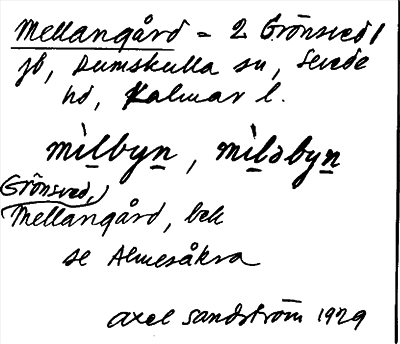 Mellangård = 2 Grönsved/
jb, Rumskulla sn, Sevede
hd, Kalmar l.
mìlbyn, mìlǝbyn
Grönsved,
Mellangård, beb
se Almesåkra
Axel Sandström 1929